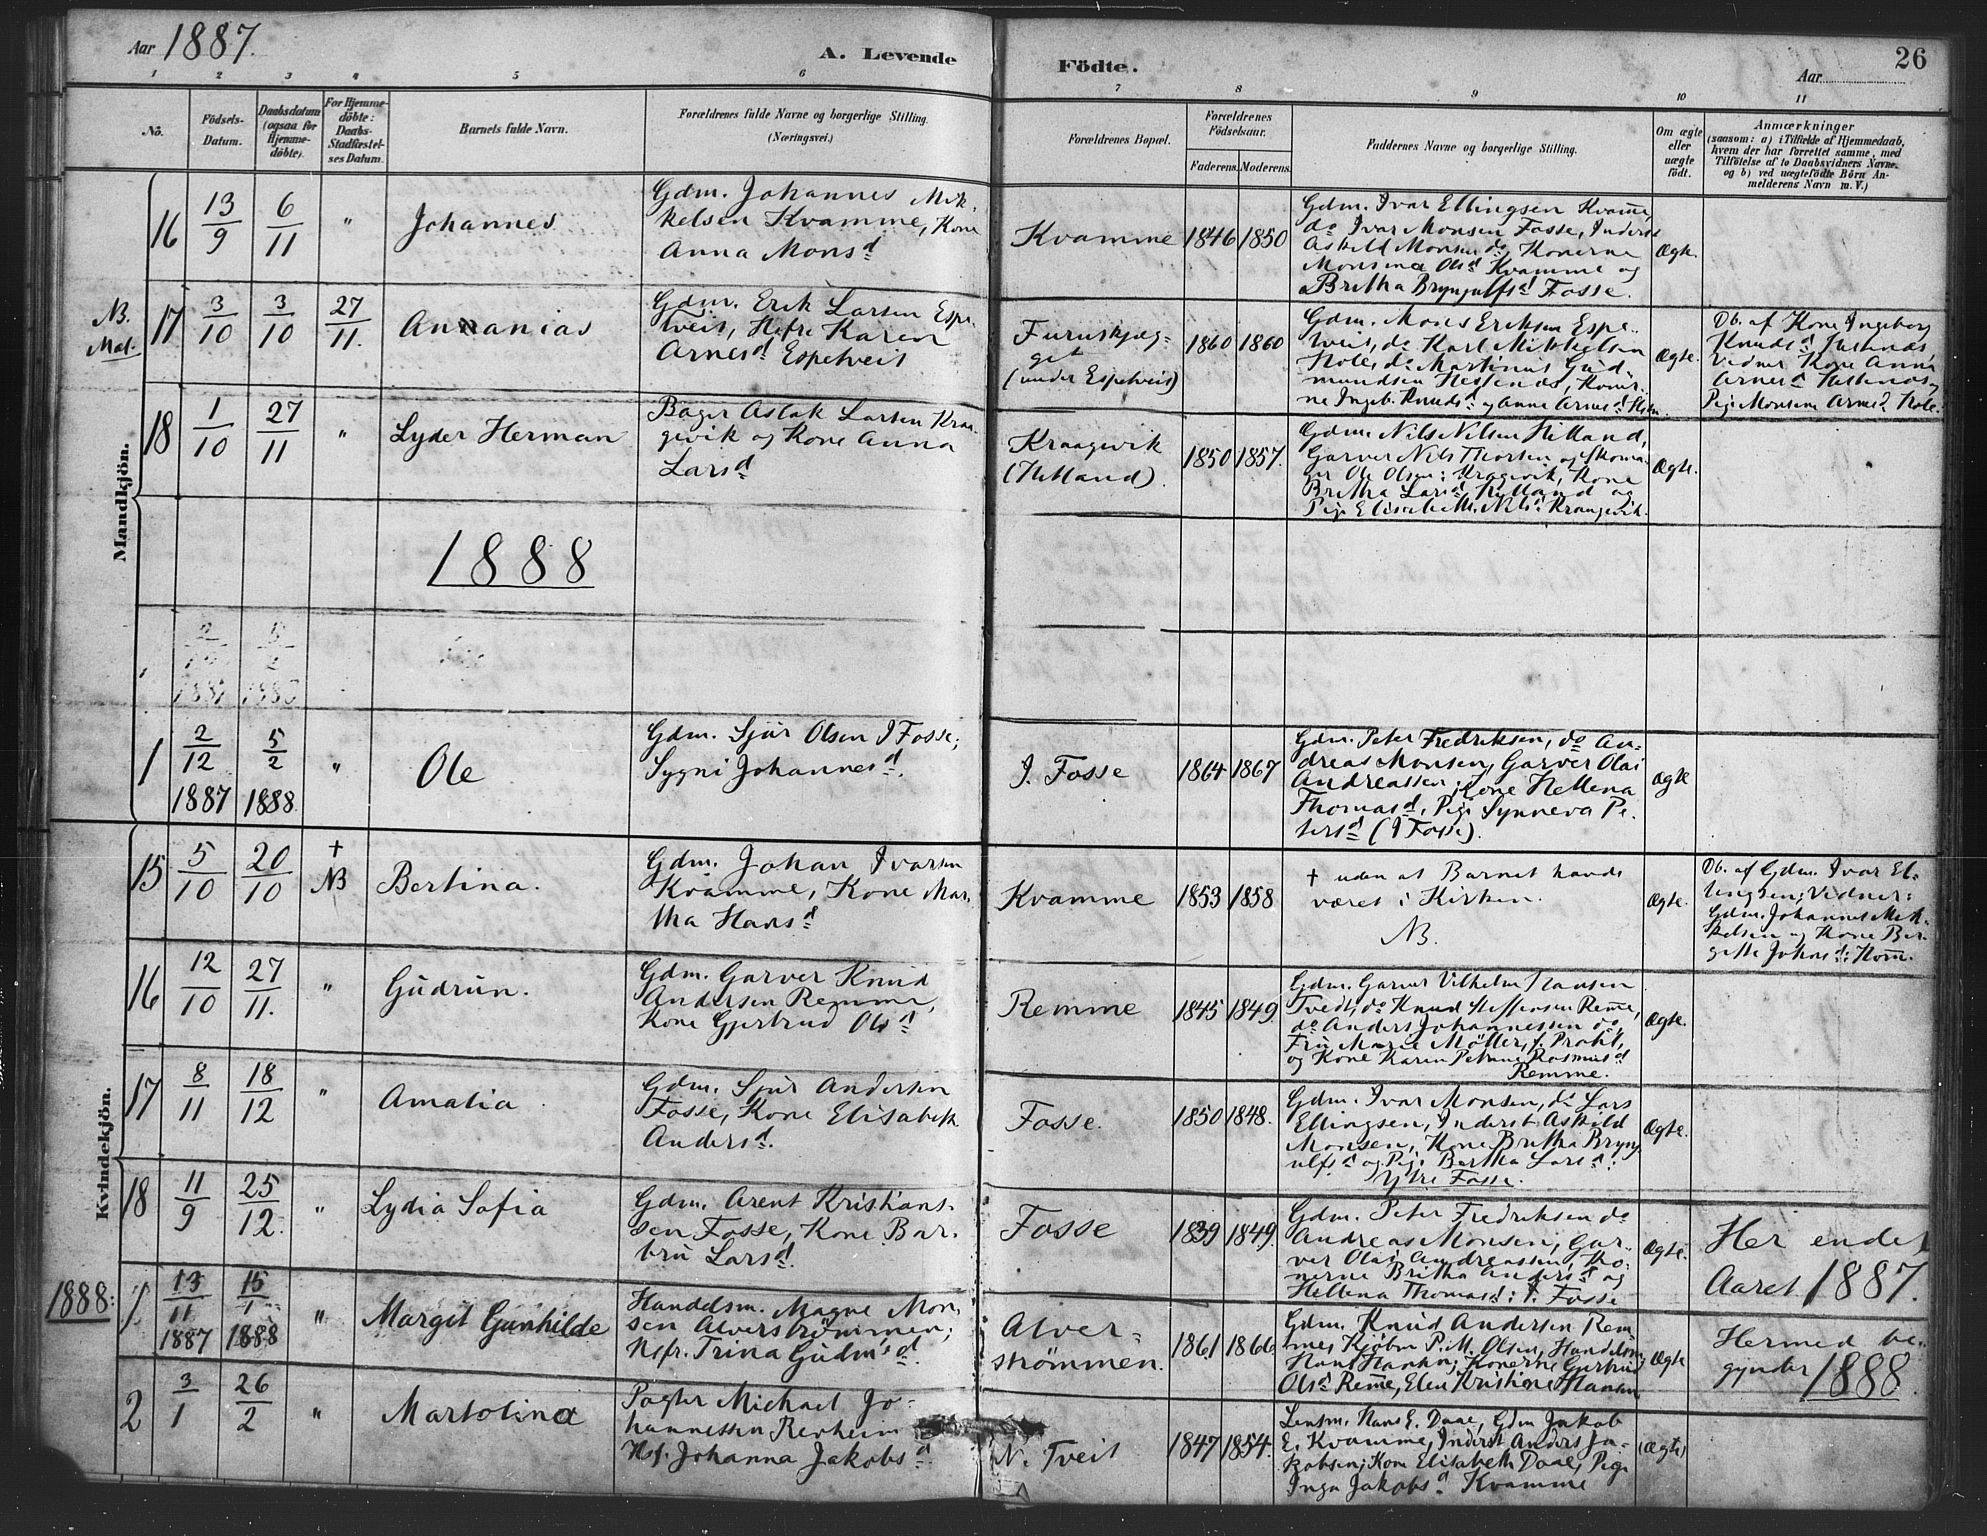 Aar 1887.
A. Levende
Födte.
Aar
26
1 2 3 4 5 6 7 8 9 10 11
No.
Födsels-
Datum.
Daabsdatum
(ogsaa for
Hjemme-
döbte).
For Hjemme-
döbte:
Daabs-
Stadfæstel-
ses Datum.
Barnets fulde Navn.
Forældrenes fulde Navne og borgerlige Stilling.
(Næringsvei.)
Forældrenes Bopæl.
Forældrenes
Födselsaar.
Faderens. Moderens.
Faddernes Navne og borgerlige Stilling.
Om ægte
eller
uægte
födt.
Anmærkninger
(saasom: a) i Tilfælde af Hjemmedaab,
hvem der har forrettet samme, med
Tilföielse af to Daabsvidners Navne.
og b) ved uægtefödte Börn An-
melderens Navn m. V.)
Mandkjön.
16 13/9 6/11 " Johannes
Gdm. Johannes Mik-
kelsen Kvamme, Kone
Anna Monsd
Kvamme 1846 1850
Gdm. Ivar Ellingsen Kvame,
do Ivar Monsen Fosse, Inderst
Askild Monsen do, Konerne
Monsina Olsd Kvamme og
Britha Brynjulfsd Fosse.
Ægte.
NB.
Mat.
17 3/10 3/10 27/11. Annanias
Gdm. Erik Larsen Espe-
tveit, Hsfr. Karen
Arnesd Espetveit
Furuskjæg-
get
(under Espetveit)
1860 1860
Gdm. Mons Eriksen Espe-
tveit, do Karl Mikkelsen
Hole, do Martinus Gud-
mundsen do, Koner-
ne Ingeb. Knudsd og Anne Arnesd
Ægte.
Db. af Kone Ingeborg
Knudsd
Vidner Kone Anna
Arnesd
Pige Monsine Arnesd Hole.
18 1/10 27/11 " Lyder Herman
Bager Aslak Larsen Kraa-
gevik og Kone Anna
Larsd
Kraagevik
(Hetland).
1850 1857.
Gdm. Nils Nilsen
Garver Nils Thorsen og Skoma-
ger Ole Olsen: Kragevik, Kone
Britha Larsd, og
Pige Elisabeth Nilsd Kraagevik.
Ægte.
1888
1 2/12 1887 5/2 1888 " Ole
Gdm. Sjur Olsen I Fosse;
Sygni Johannesd.
I. Fosse 1864 1867
Gdm. Peter Fredriksen, do An-
dreas Monsen, Garver Olai
Andreassen, Kone Hellena
Thomasd, Pige Synneva Pe-
tersd (I Fosse).
Ægte
Kvindekjön.
15 5/10 20/10 † NB Bertina.
Gdm. Johan Ivarsen
Kvamme, Kone Mar-
tha Hansd
Kvamme 1853 1858
† uden at Barnet havde
været i Kirken.
NB.
Ægte.
Db. af Gdm. Ivar El-
lingsen; Vidner:
Gdm. Johannes Mik-
kelsen og Kone Ber-
gitte Johnsd: Kvam.
16 12/10 27/11. " Gudrun.
Gdm. Garver Knud
Andersen Remme,
Kone Gjertrud Olsd
Remme 1845 1849.
Gdm. Garver Vilhelm Hansen
Tvedt, do Knud Steffensen Reme,
do Anders Johannessen do,
Fru Marie Møller, f. Prahl,
og Kone Karen Petrine Rasmusd
Remme.
Ægte.
17 8/11 18/12 " Amalia
Gdm. Sjur Andersen
Fosse, Kone Elisabeth
Andersd.
Fosse. 1850 1848.
Gdm. Ivar Monsen, do Lars
Ellingsen, Inderst Askild
Monsen, Kone Britha Bryn-
ulfsd og Pige Bertha Larsd:
Ytre Fosse.
Ægte.
18 11/9 25/12. " Lydia Sofia
Gdm. Arent Kristians-
sen Fosse, Kone Bar-
bru Larsd.
Fosse 1839 1849.
Gdm. Peter Fredriksen do
Andreas Monsen, Gar-
ver Olai Andreassen, Ko-
nerne Britha Andersd og
Hellena Thomasd: I. Fosse
Ægte.
Her endet
Aaret 1887.
1888:
1 13/11 1887 15/1 1888 " Margit Gunhilde
Handelsm. Magne Mon-
sen Alverstrømmen;
Hsfr. Trina Gudm.sd.
Alver-
strømmen.
1861 1866
Gdm. Knud Andersen Rem-
me, Kjøbm P. M. Olsen, Handelsm
Hans Konerne Gjertrud
Olsd Reme, Elen Kristiane
Ægte
Hermed be-
gynder 1888.
2 3/1 26/2 " Martolina
Pagter Michael Jo-
hannessen Revheim
Hsf. Johanna Jakobsd.
N. Tveit 1847 1854.
Lensm. Hans E. Daae, Gdm Jakob
E. Kvamme, Inderst Anders Ja-
kobsen; Kone Elisabeth Daae, Pige
Inga Jakobsd Kvamme
(Ægte)